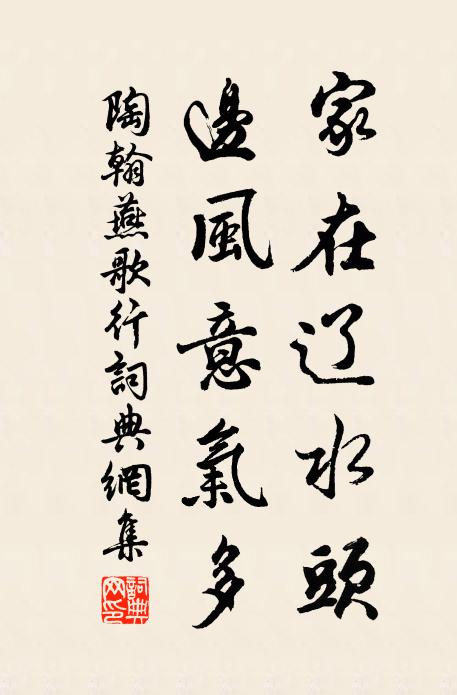 家在辽水頭
邊風意氣多
陶翰燕歌行詞典網集
詞典网印